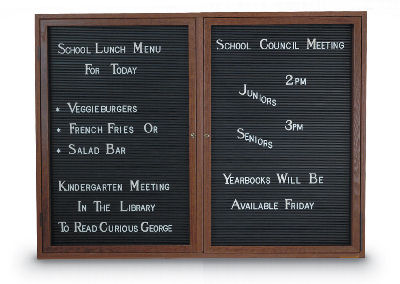 School Lunch Menu
For Today
* Veggieburgers
* French Fries Or
* Salad Bar
Kindergarten Meeting
In The Library
To Read Curious George
School Council Meeting
2pm
Juniors
3pm
Seniors
Yearbooks Will Be
Available Friday